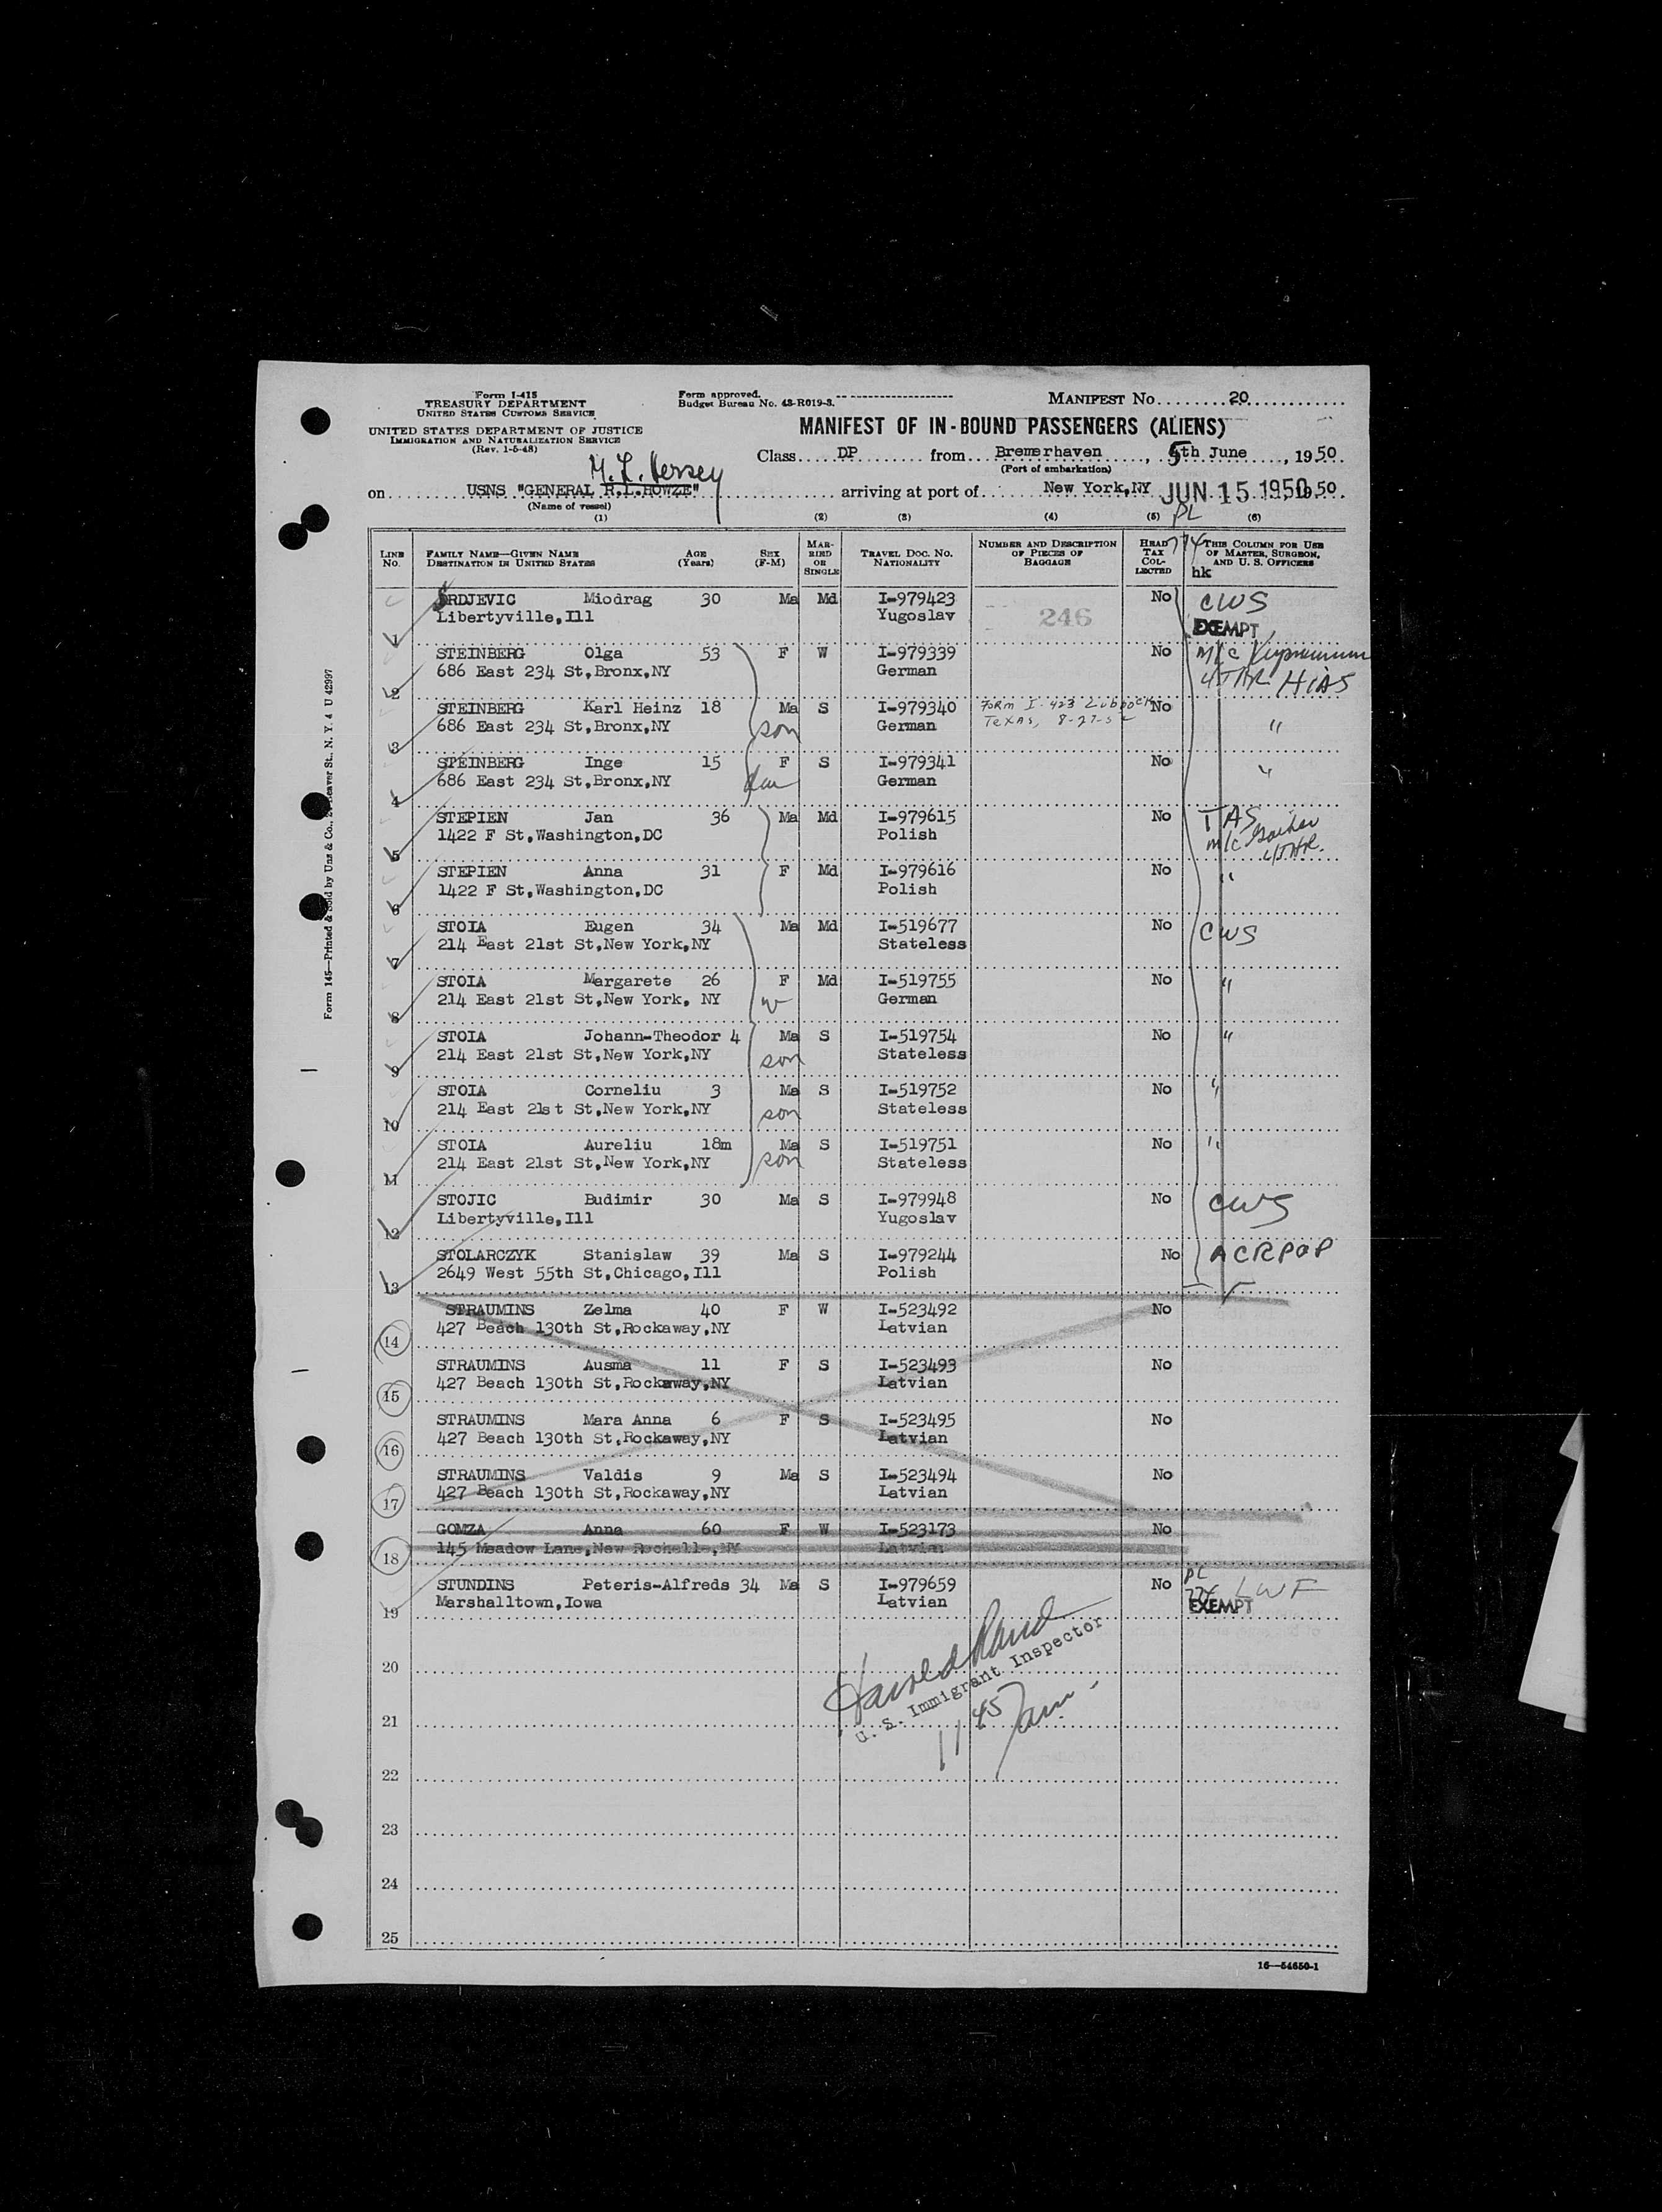 Form I-415
TREASURY DEPARTMENT
UNITED STATES CUSTOMS SERVICE
UNITED STATES DEPARTMENT OF JUSTICE
IMMIGRATION AND NATURALIZATION SERVICE
(Rev. 1-5-48)
Form approved.
Budget Bureau No. 43-R019-3.
MANIFEST No. 20
MANIFEST OF IN-BOUND PASSENGERS (ALIENS)
Class DP from Bremerhaven, 5th June, 1950
(Port of embarkation)
M. L. Hersey
on USNS "GENERAL R.L.HOWZE" arriving at port of New York,NY JUN 15 1950 1950.
(Name of vessel)
(1) (2) (3) (4) (5) (6)
LINE No. FAMILY NAME—GIVEN NAME DESTINATION IN UNITED STATES AGE (Years) SEX (F-M) MARRIED OR SINGLE TRAVEL DOC. No. NATIONALITY NUMBER AND DESCRIPTION OF PIECES OF BAGGAGE HEAD TAX COLLECTED THIS COLUMN FOR USE OF MASTER, SURGEON, AND U. S. OFFICERS
hk
SRDJEVIC Miodrag 30 Ma Md I-979423 No CWS
1 Libertyville,Ill Yugoslav 246 EXEMPT
STEINBERG Olga 53 F W I-979339 No M/C
2 686 East 234 St,Bronx,NY German HIAS
STEINBERG Karl Heinz 18 Ma S I-979340 Form I-423 Lubbock No
3 686 East 234 St,Bronx,NY son German Texas, 8-27-52 "
STEINBERG Inge 15 F S I-979341 No "
4 686 East 234 St,Bronx,NY dau German
STEPIEN Jan 36 Ma Md I-979615 No TAS
5 1422 F St,Washington,DC Polish m/c
STEPIEN Anna 31 F Md I-979616 No "
6 1422 F St,Washington,DC Polish
STOIA Eugen 34 Ma Md I-519677 No CWS
7 214 East 21st St,New York,NY Stateless
STOIA Margarete 26 F Md I-519755 No "
8 214 East 21st St,New York, NY w German
STOIA Johann-Theodor 4 Ma S I-519754 No "
9 214 East 21st St,New York,NY son Stateless
STOIA Corneliu 3 Ma S I-519752 No "
10 214 East 21st St,New York,NY son Stateless
STOIA Aureliu 18m Ma S I-519751 No "
11 214 East 21st St,New York,NY son Stateless
STOJIC Budimir 30 Ma S I-979948 No CWS
12 Libertyville,Ill Yugoslav
STOLARCZYK Stanislaw 39 Ma S I-979244 No ACRPOP
13 2649 West 55th St,Chicago,Ill Polish
STRAUMINS Zelma 40 F W I-523492 No
14 427 Beach 130th St,Rockaway,NY Latvian
STRAUMINS Ausma 11 F S I-523493 No
15 427 Beach 130th St,Rockaway,NY Latvian
STRAUMINS Mara Anna 6 F S I-523495 No
16 427 Beach 130th St,Rockaway,NY Latvian
STRAUMINS Valdis 9 Ma S I-523494 No
17 427 Beach 130th St,Rockaway,NY Latvian
GOMZA Anna 60 F W I-523173 No
18 145 Meadow Lane,New Rochelle,NY Latvian
STUNDINS Peteris-Alfreds 34 Ma S I-979659 No LWF
19 Marshalltown,Iowa Latvian EXEMPT
20
U. S. Immigrant Inspector
21
11 45 am
22
23
24
25
16—54650-1